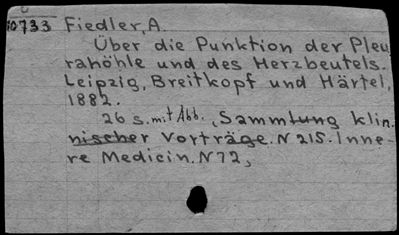 10733 Fiedler, A.
Über die Punktion der Pleu
rahöhle und des Herzbeutels.
Leipzig, Breitkopf und Härtel,
1882.
26 S. mit Abb. , Sammlung klin.
nischer Vorträge. N 215. Inne-
re Medicin. N 72,